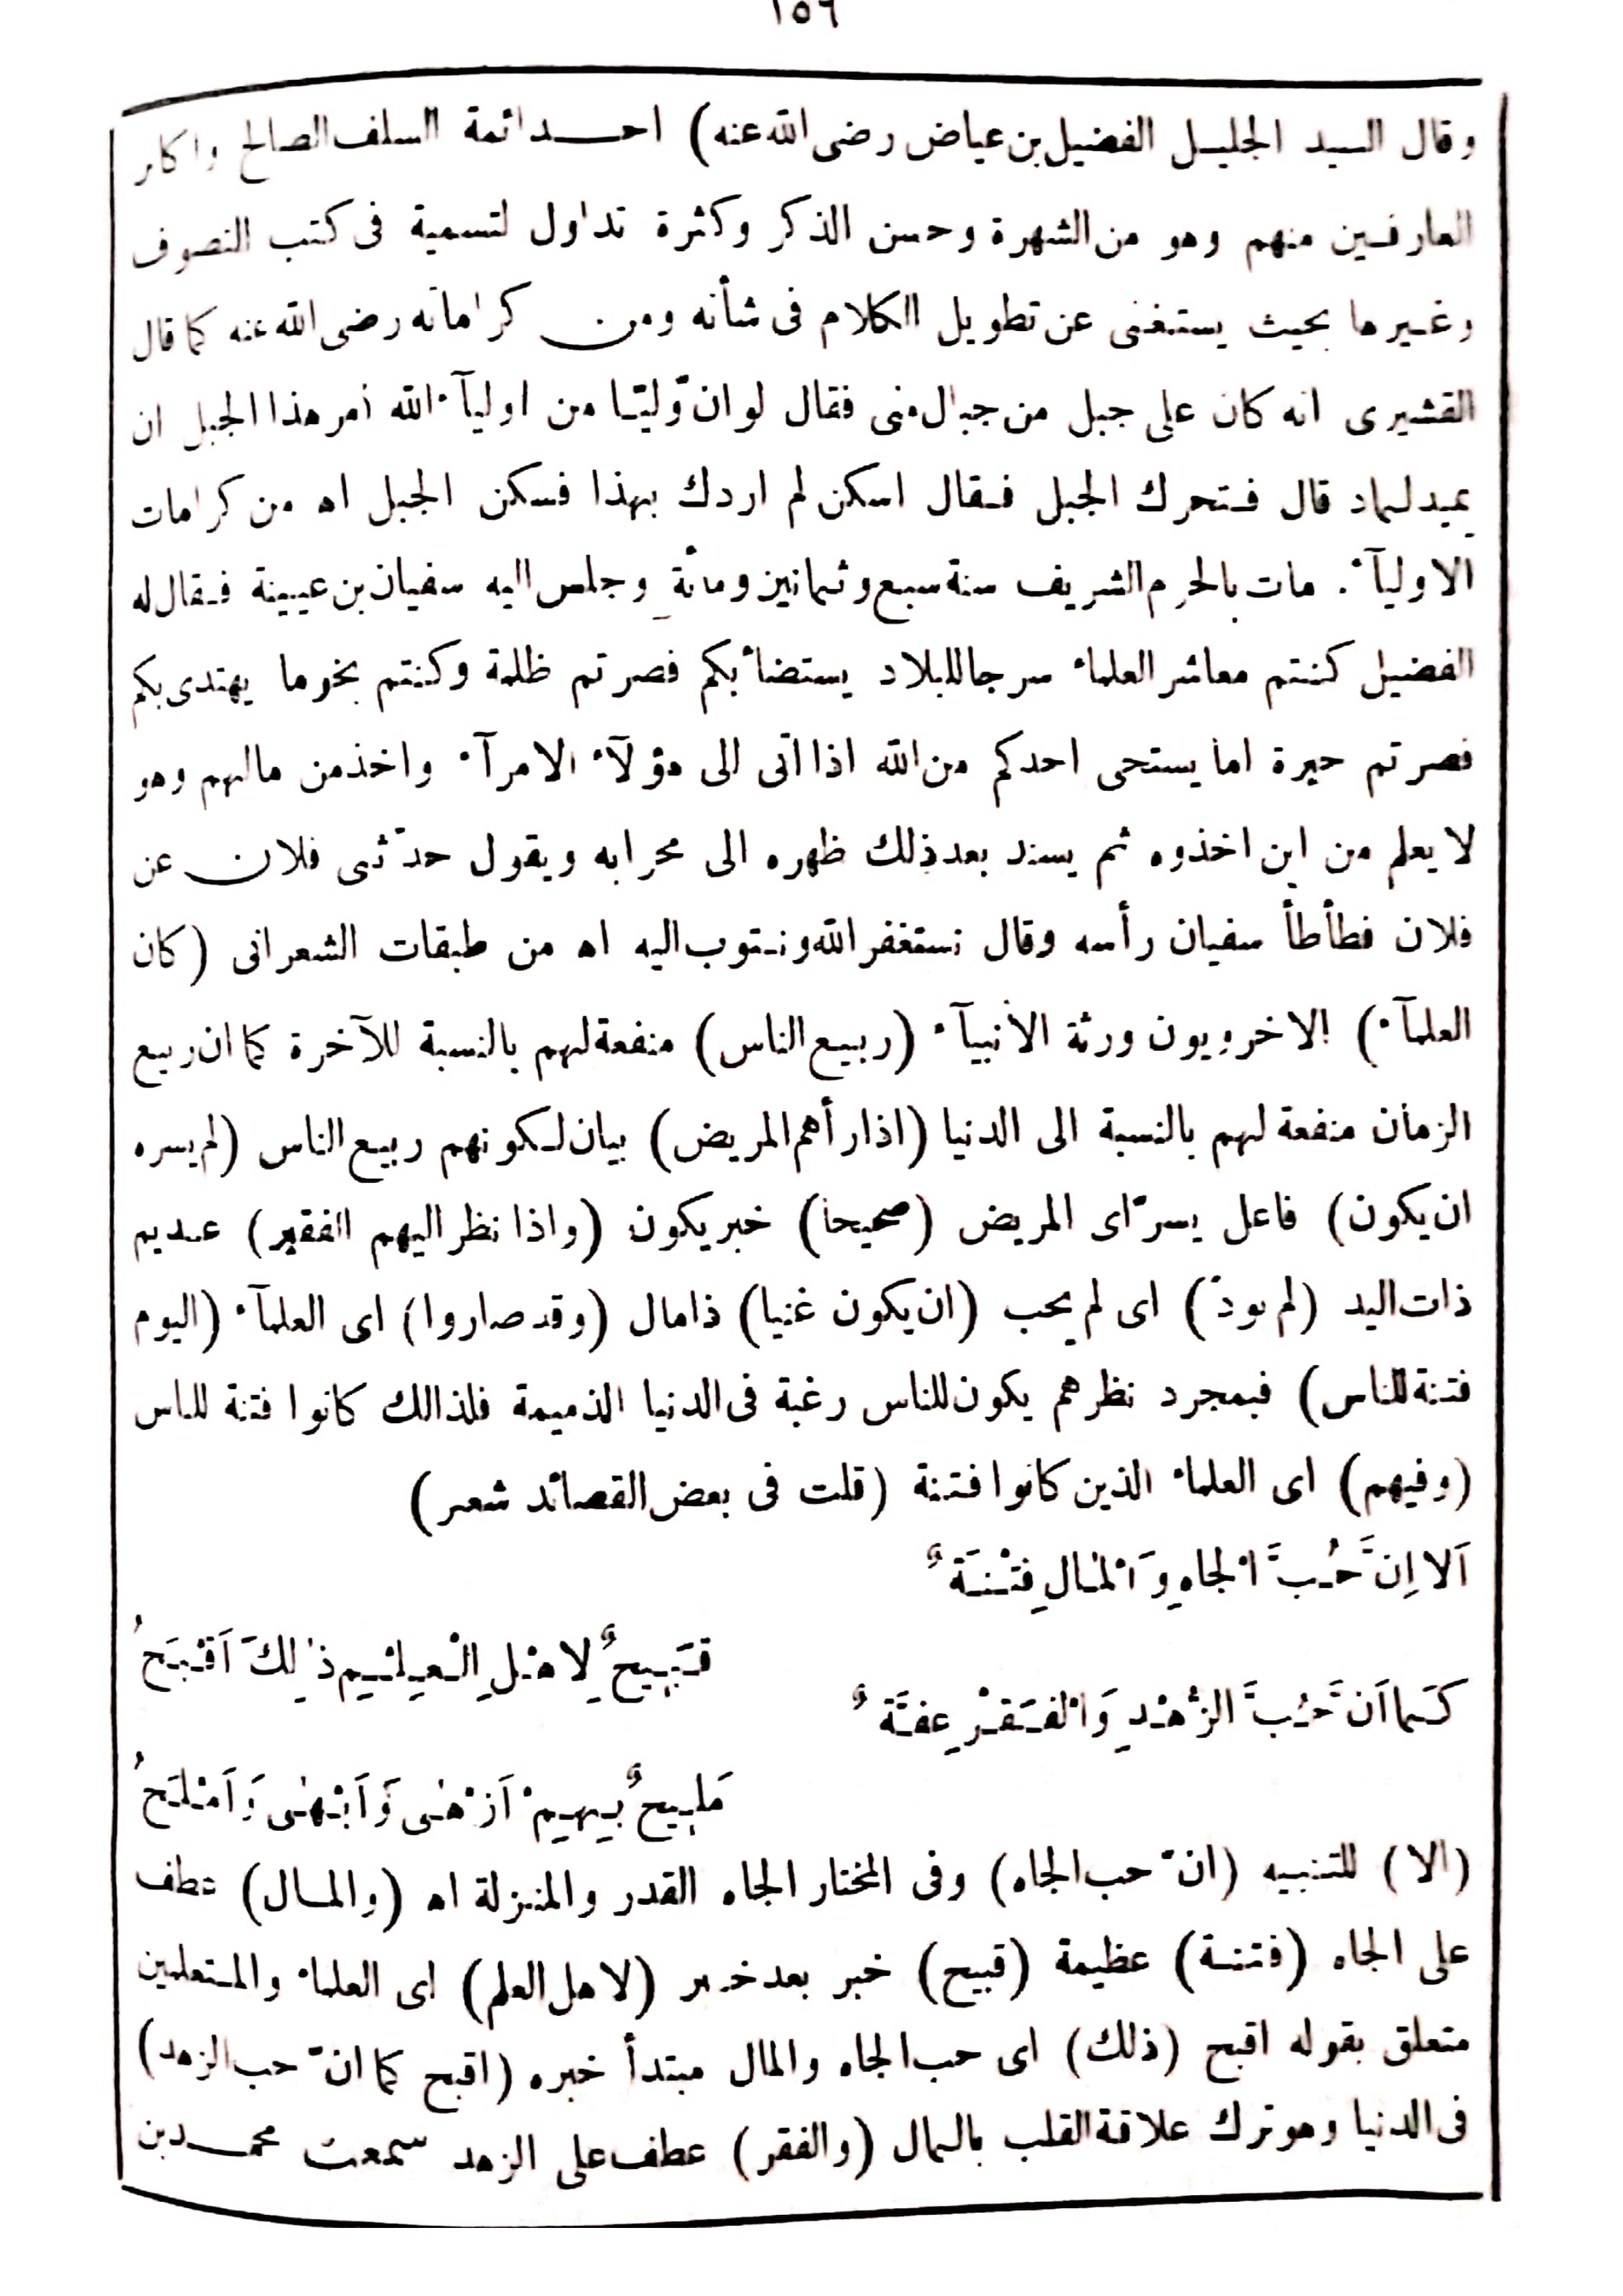 ١٥٦
وقال السيد الجليل الفضيل بن عياض رضى الله عنه) احد ائمة السلف الصالح واكابر
العارفين منهم وهو من الشهرة وحسن الذكر وكثرة تداول لتسمية فى كتب التصوف
وغيرها بحيث يستغنى عن تطويل الكلام فى شأنه ومن كراماته رضى الله عنه كما قال
القشيرى انه كان على جبل من جبال منى فقال لو ان وليّا من اوليآء الله أمر هذا الجبل ان
يميد لماد قال فتحرك الجبل فقال اسكن لم اردك بهذا فسكن الجبل اه من كرامات
الاوليآء. مات بالحرم الشريف سنة سبع وثمانين ومائة وجلس اليه سفيان بن عيينة فقال له
الفضيل كنتم معاشر العلماء سرجا للبلاد يستضاء بكم فصرتم ظلمة وكنتم نجوما يهتدى بكم
فصرتم حيرة اما يستحى احدكم من الله اذا اتى الى هؤلآء الامرآء واخذ من مالهم وهو
لا يعلم من اين اخذوه ثم يسند بعد ذلك ظهره الى محرابه ويقول حدّثنى فلان عن
فلان فطأطأ سفيان رأسه وقال نستغفر الله ونتوب اليه اه من طبقات الشعرانى (كان
العلمآء) الاخرويون ورثة الأنبيآء (ربيع الناس) منفعة لهم بالنسبة للآخرة كما ان ربيع
الزمان منفعة لهم بالنسبة الى الدنيا (اذا رأهم المريض) بيان لكونهم ربيع الناس (لم يسره
ان يكون) فاعل يسرّ اى المريض (صحيحا) خبر يكون (واذا نظر اليهم الفقير) عديم
ذات اليد (لم يودّ) اى لم يحب (ان يكون غنيا) ذا مال (وقد صاروا) اى العلمآء (اليوم
فتنة للناس) فبمجرد نظرهم يكون للناس رغبة فى الدنيا الذميمة فلذالك كانوا فتنة للناس
(وفيهم) اى العلماء الذين كانوا فتنة (قلت فى بعض القصائد شعر)
اَلا اِنَّ حُبَّ الْجاهِ وَالْمٰالِ فِتْنَةٌ
قَبِيحٌ لِاهْلِ الْعِلْمِ ذٰلِكَ اَقْبَحُ
كَما اَنَّ حُبَّ الزُّهْدِ وَالْفَقْرِ عِفَّةٌ
مَلِيحٌ بِهِمْ اَزْهٰى وَاَبْهٰى وَاَمْلَحُ
(الا) للتنبيه (انّ حب الجاه) وفى المختار الجاه القدر والمنزلة اه (والمال) عطف
على الجاه (فتنة) عظيمة (قبيح) خبر بعد خبر (لاهل العلم) اى العلماء والمتعلمين
متعلق بقوله اقبح (ذلك) اى حب الجاه والمال مبتدأ خبره (اقبح كما انّ حب الزهد)
فى الدنيا وهو ترك علاقة القلب بالمال (والفقر) عطف على الزهد سمعت محمد بن